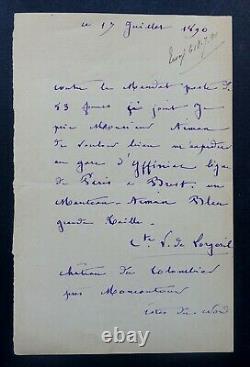 ce 17 Juillet 1890
contre le Mandat poste de
83 francs ci joint Je
prie Monsieur Niman
de vouloir bien m'expedier
en gare d'Yffiniac ligne
de Paris à Brest. un
Manteau Niman Bleu
grande Taille.
Cte V. de Lorgeril
château du Colombier
près Moncontour
côtes du Nord